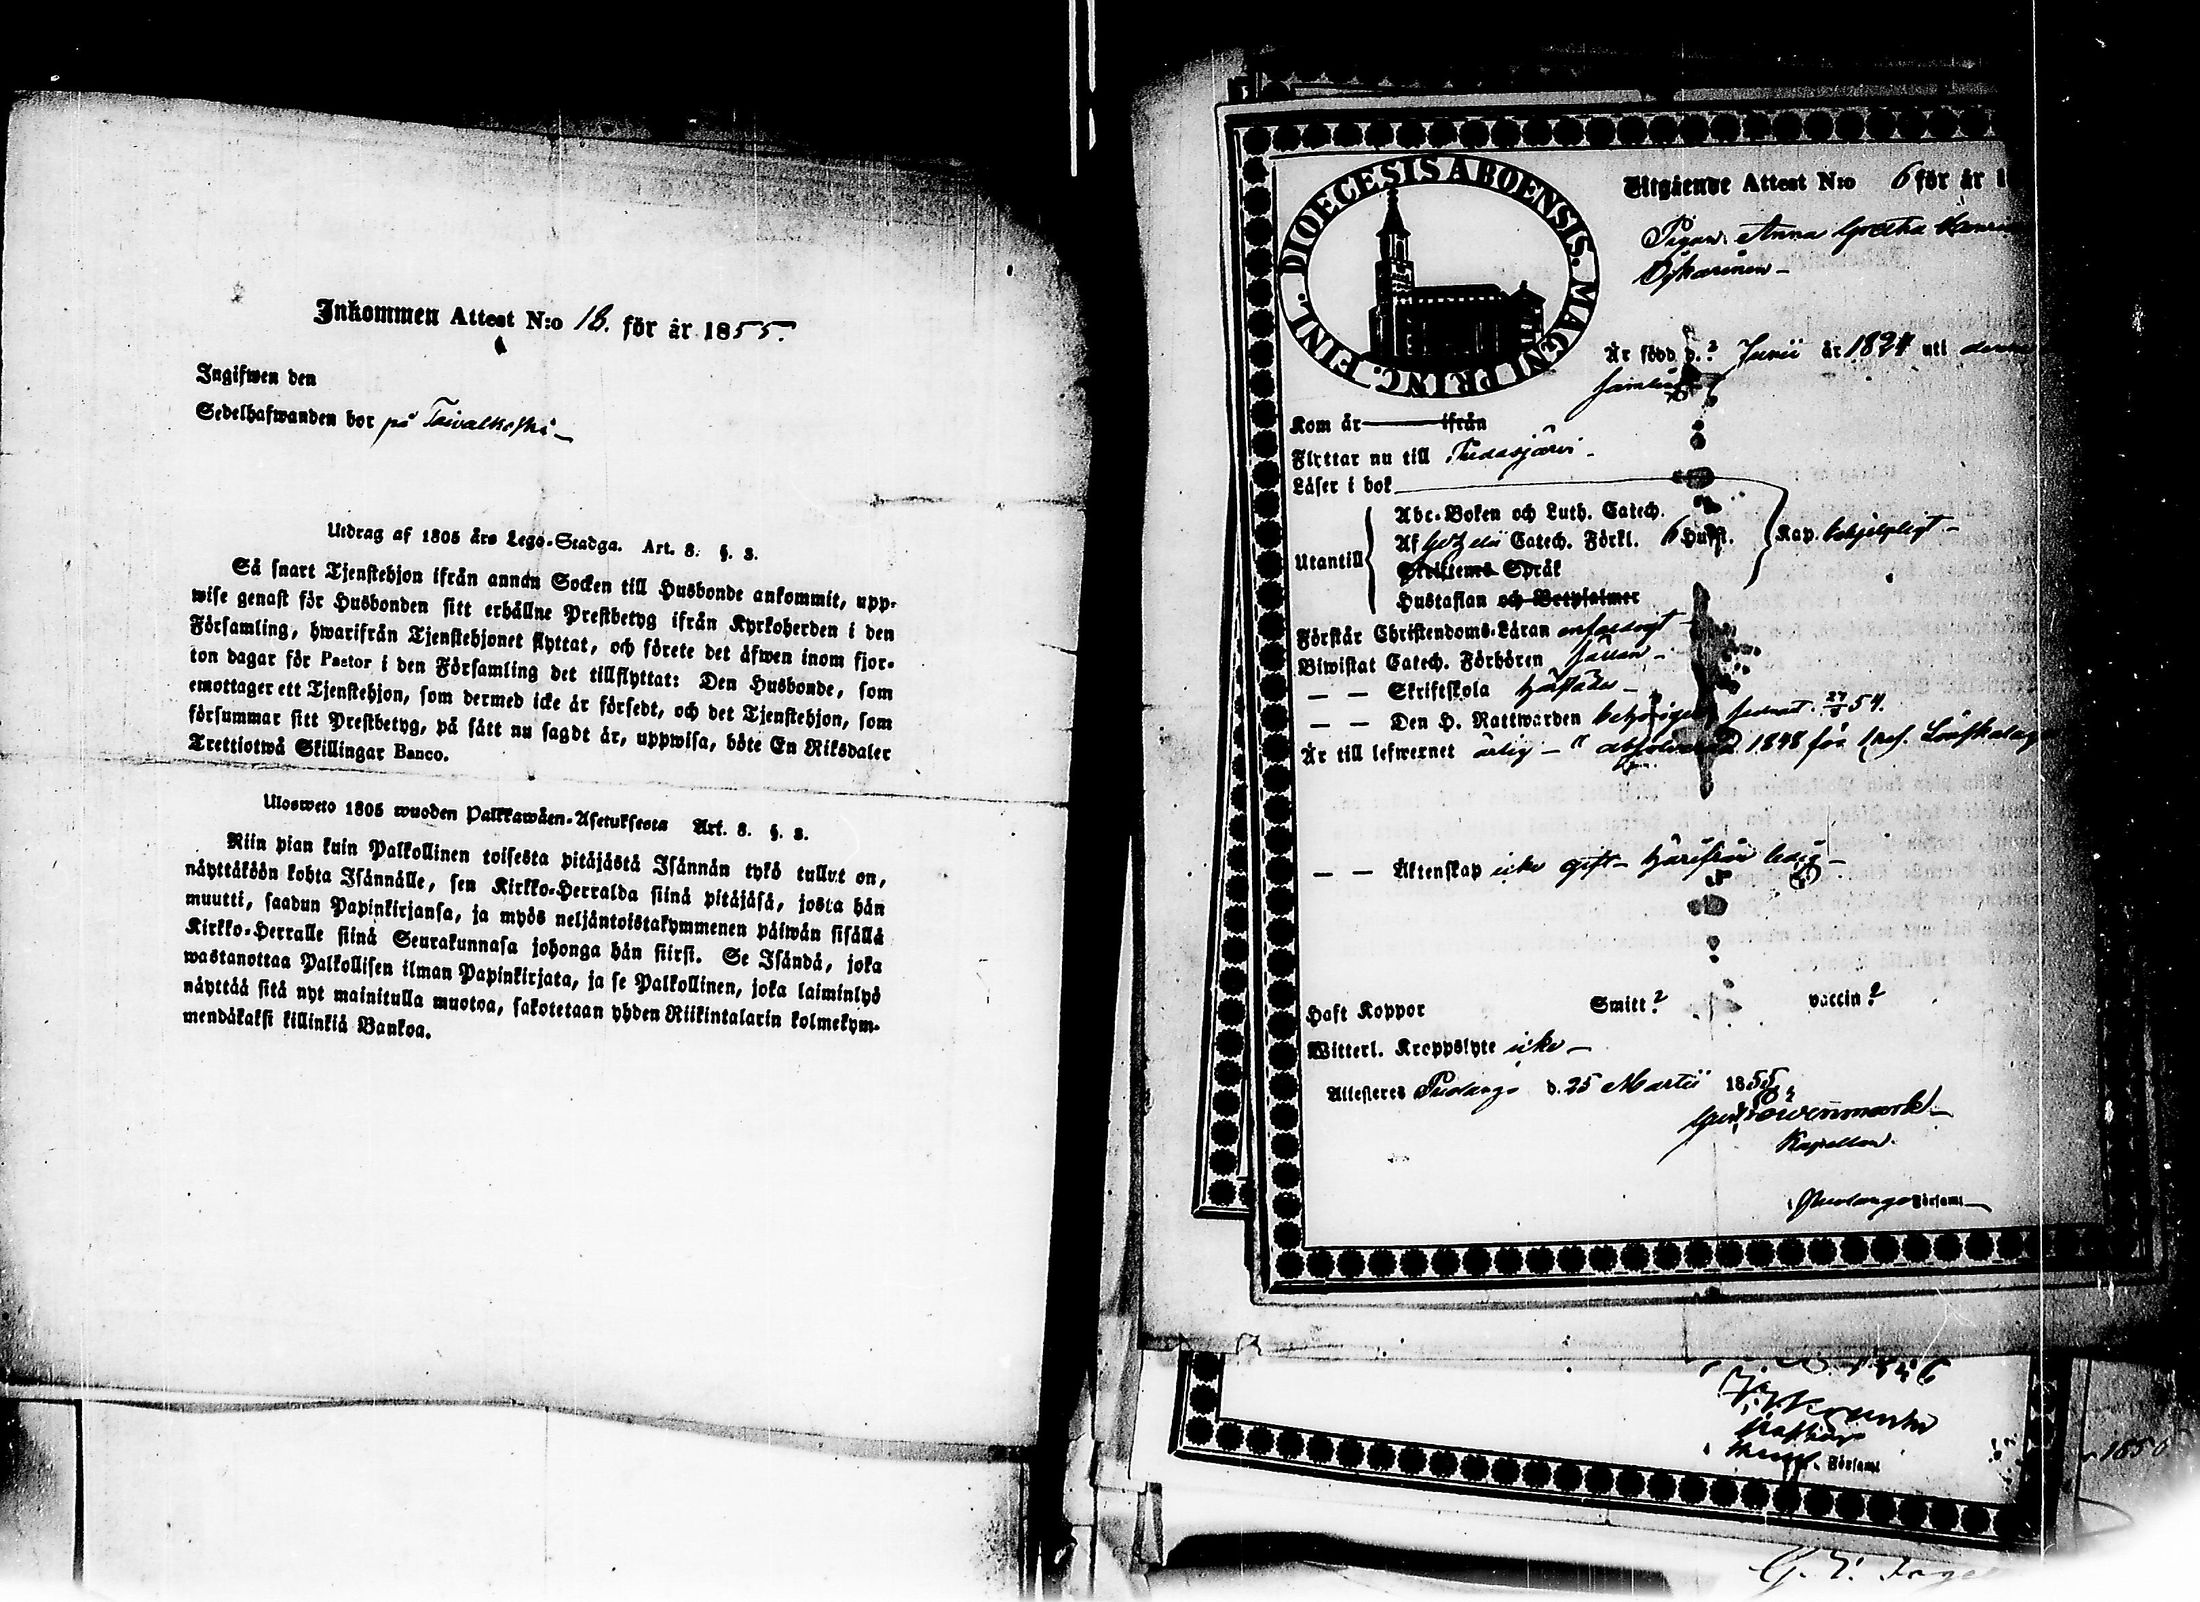 Inkommen Attest N:o 18. för år 1855.
Ingifwen den
Sedelhafwanden bor på Taivalkoski
Utdrag af 1805 års Lego-Stadga. Art. 8. §. 3.
Så snart Tjenstehjon ifrån annan Socken till Husbonde ankommit, upp-
wise genast för Husbonden sitt erhållne Prestbetyg ifrån Kyrkoherden i den
Församling, hwarifrån Tjenstehjonet flyttat, och förete det äfwen inom fjor-
ton dagar för Pastor i den Församling det tillflyttat: Den Husbonde, som
emottager ett Tjenstehjon, som dermed icke är försedt, och det Tjenstehjon, som
försummar sitt Prestbetyg, på sätt nu sagdt är, uppwisa, böte En Riksdaler
Trettiotwå Skillingar Banco.
Ulosweto 1805 wuoden Palkkawäen-Asetuksesta Art. 8. §. 3.
Niin pian kuin Palkollinen toisesta pitäjästä Isännän tykö tullut on,
näyttäköön kohta Isännälle, sen Kirkko-Herralda siinä pitäjäsä, josta hän
muutti, saadun Papinkirjansa, ja myös neljäntoistakymmenen päiwän sisällä
Kirkko-Herralle siinä Seurakunnasa johonga hän siirsi. Se Isändä, joka
wastanottaa Palkollisen ilman Papinkirjata, ja se Palkollinen, joka laiminlyö
näyttää sitä nyt mainitulla muotoa, sakotetaan yhden Riikintalarin kolmekym-
mendäkaksi killinkiä Bankoa.
DIOECESIS ABOENSIS. MAGNI PRINC. FINL.
Utgående Attest N:o 6 för år 1
Pigan Anna Greta
Är född d. 2 Junii år 1824 uti denna
Kom år ifrån
Flyttar nu till Pudasjärvi
Läser i bok
Abc-Boken och Luth. Catech.
Utantill Af Catech. Förkl. 6 Hufst. Kap. behjelpligt
Skriftens Språk
Hustaflan och Botpsalmer
Förstår Christendoms-Läran enfaldigt
Biwistat Catech. Förhören sällan
— — Skriftskola
— — Den H. Nattwarden senast 27/8 54.
Är till lefwernet ärlig 1848 för
— — Äktenskap icke gift härifrån ledig
Haft Koppor Smitt? vaccin?
Witterl. Kroppslyte icke
Attesteres Puolango d. 25 Martii 1855
Kapellan.
Puolango Församl
Församl